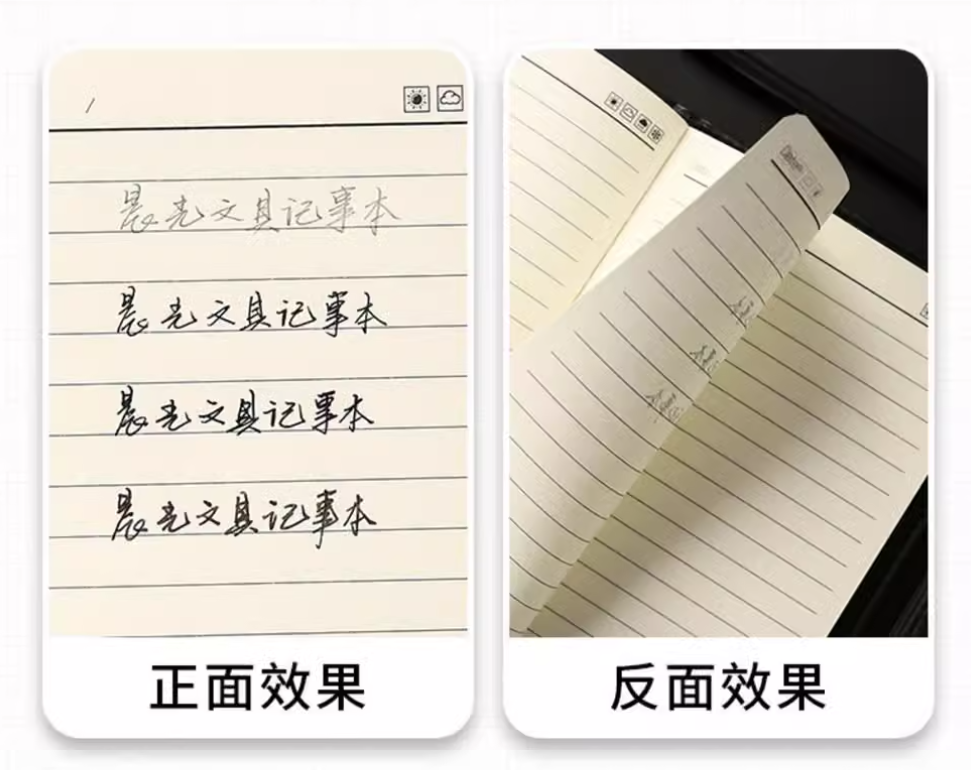 晨光文具记事本
晨光文具记事本
晨光文具记事本
晨光文具记事本
正面效果
反面效果